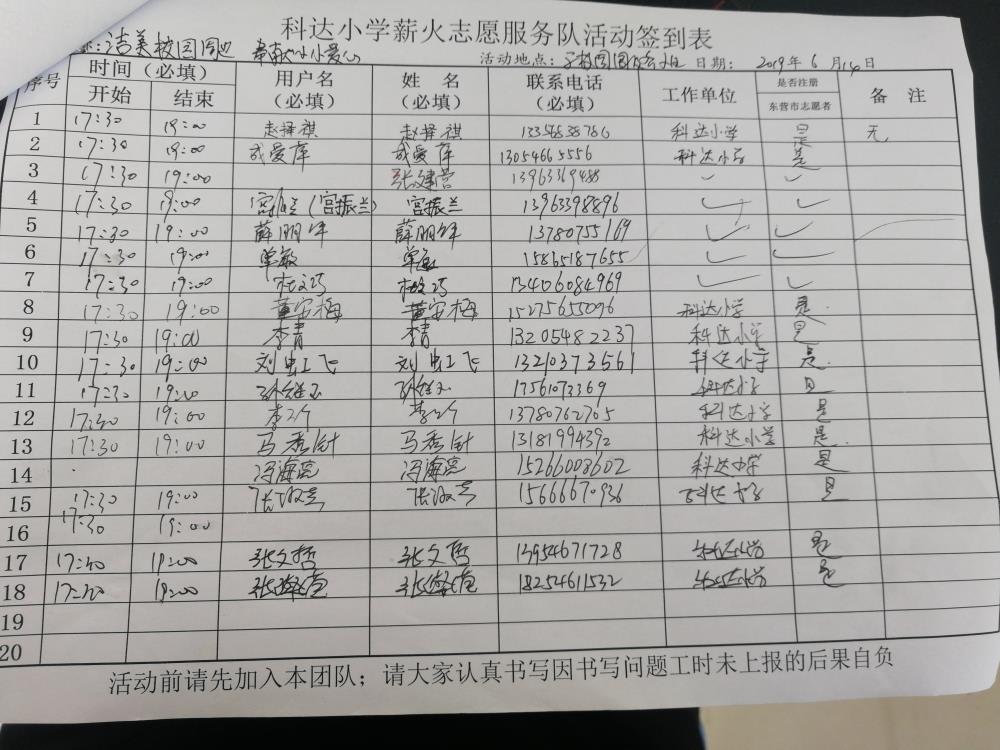 科达小学薪火志愿服务队活动签到表
洁美校园周边 奉献小小爱心 活动地点: 日期: 2019年6月14日
序号 时间(必填) 用户名(必填) 姓名(必填) 联系电话(必填) 工作单位 是否注册东营市志愿者 备注
开始 结束
1 17:30 19:00 赵择祺 赵择祺 科达小学 是 无
2 17:30 19:00 成爱萍 成爱萍 13054665556 科达小学 是
3 17:30 19:00 张建营 13963369488 ✓ ✓
4 17:30 19:00 (宫振兰) 宫振兰 13963398896 ✓ ✓
5 17:30 19:00 薛朋军 薛朋军 13780755169 ✓ ✓
6 17:30 19:00 单敏 单敏 15865187655 ✓ ✓
7 17:30 19:00 杜文巧 杜文巧 13406084969 ✓ ✓
8 17:30 19:00 董安梅 董安梅 15275655096 科达小学 是
9 17:30 19:00 李青 李青 13205482237 科达小学 是
10 17:30 19:00 刘虹飞 刘虹飞 13210373561 科达小学 是
11 17:30 19:00 孙继玉 孙继玉 17561073369 科达小学 是
12 17:30 19:00 13780762705 科达小学 是
13 17:30 19:00 马秀针 马秀针 13181994392 科达小学 是
14 冯海亮 冯海亮 15266008602 科达小学 是
15 17:30 19:00 张淑兰 张淑兰 15666670936 科达小学 是
16 17:30 19:00
17 17:30 19:00 张文哲 张文哲 13954671728 科达小学 是
18 17:30 19:00 18254611532 科达小学 是
19
20
活动前请先加入本团队;请大家认真书写因书写问题工时未上报的后果自负